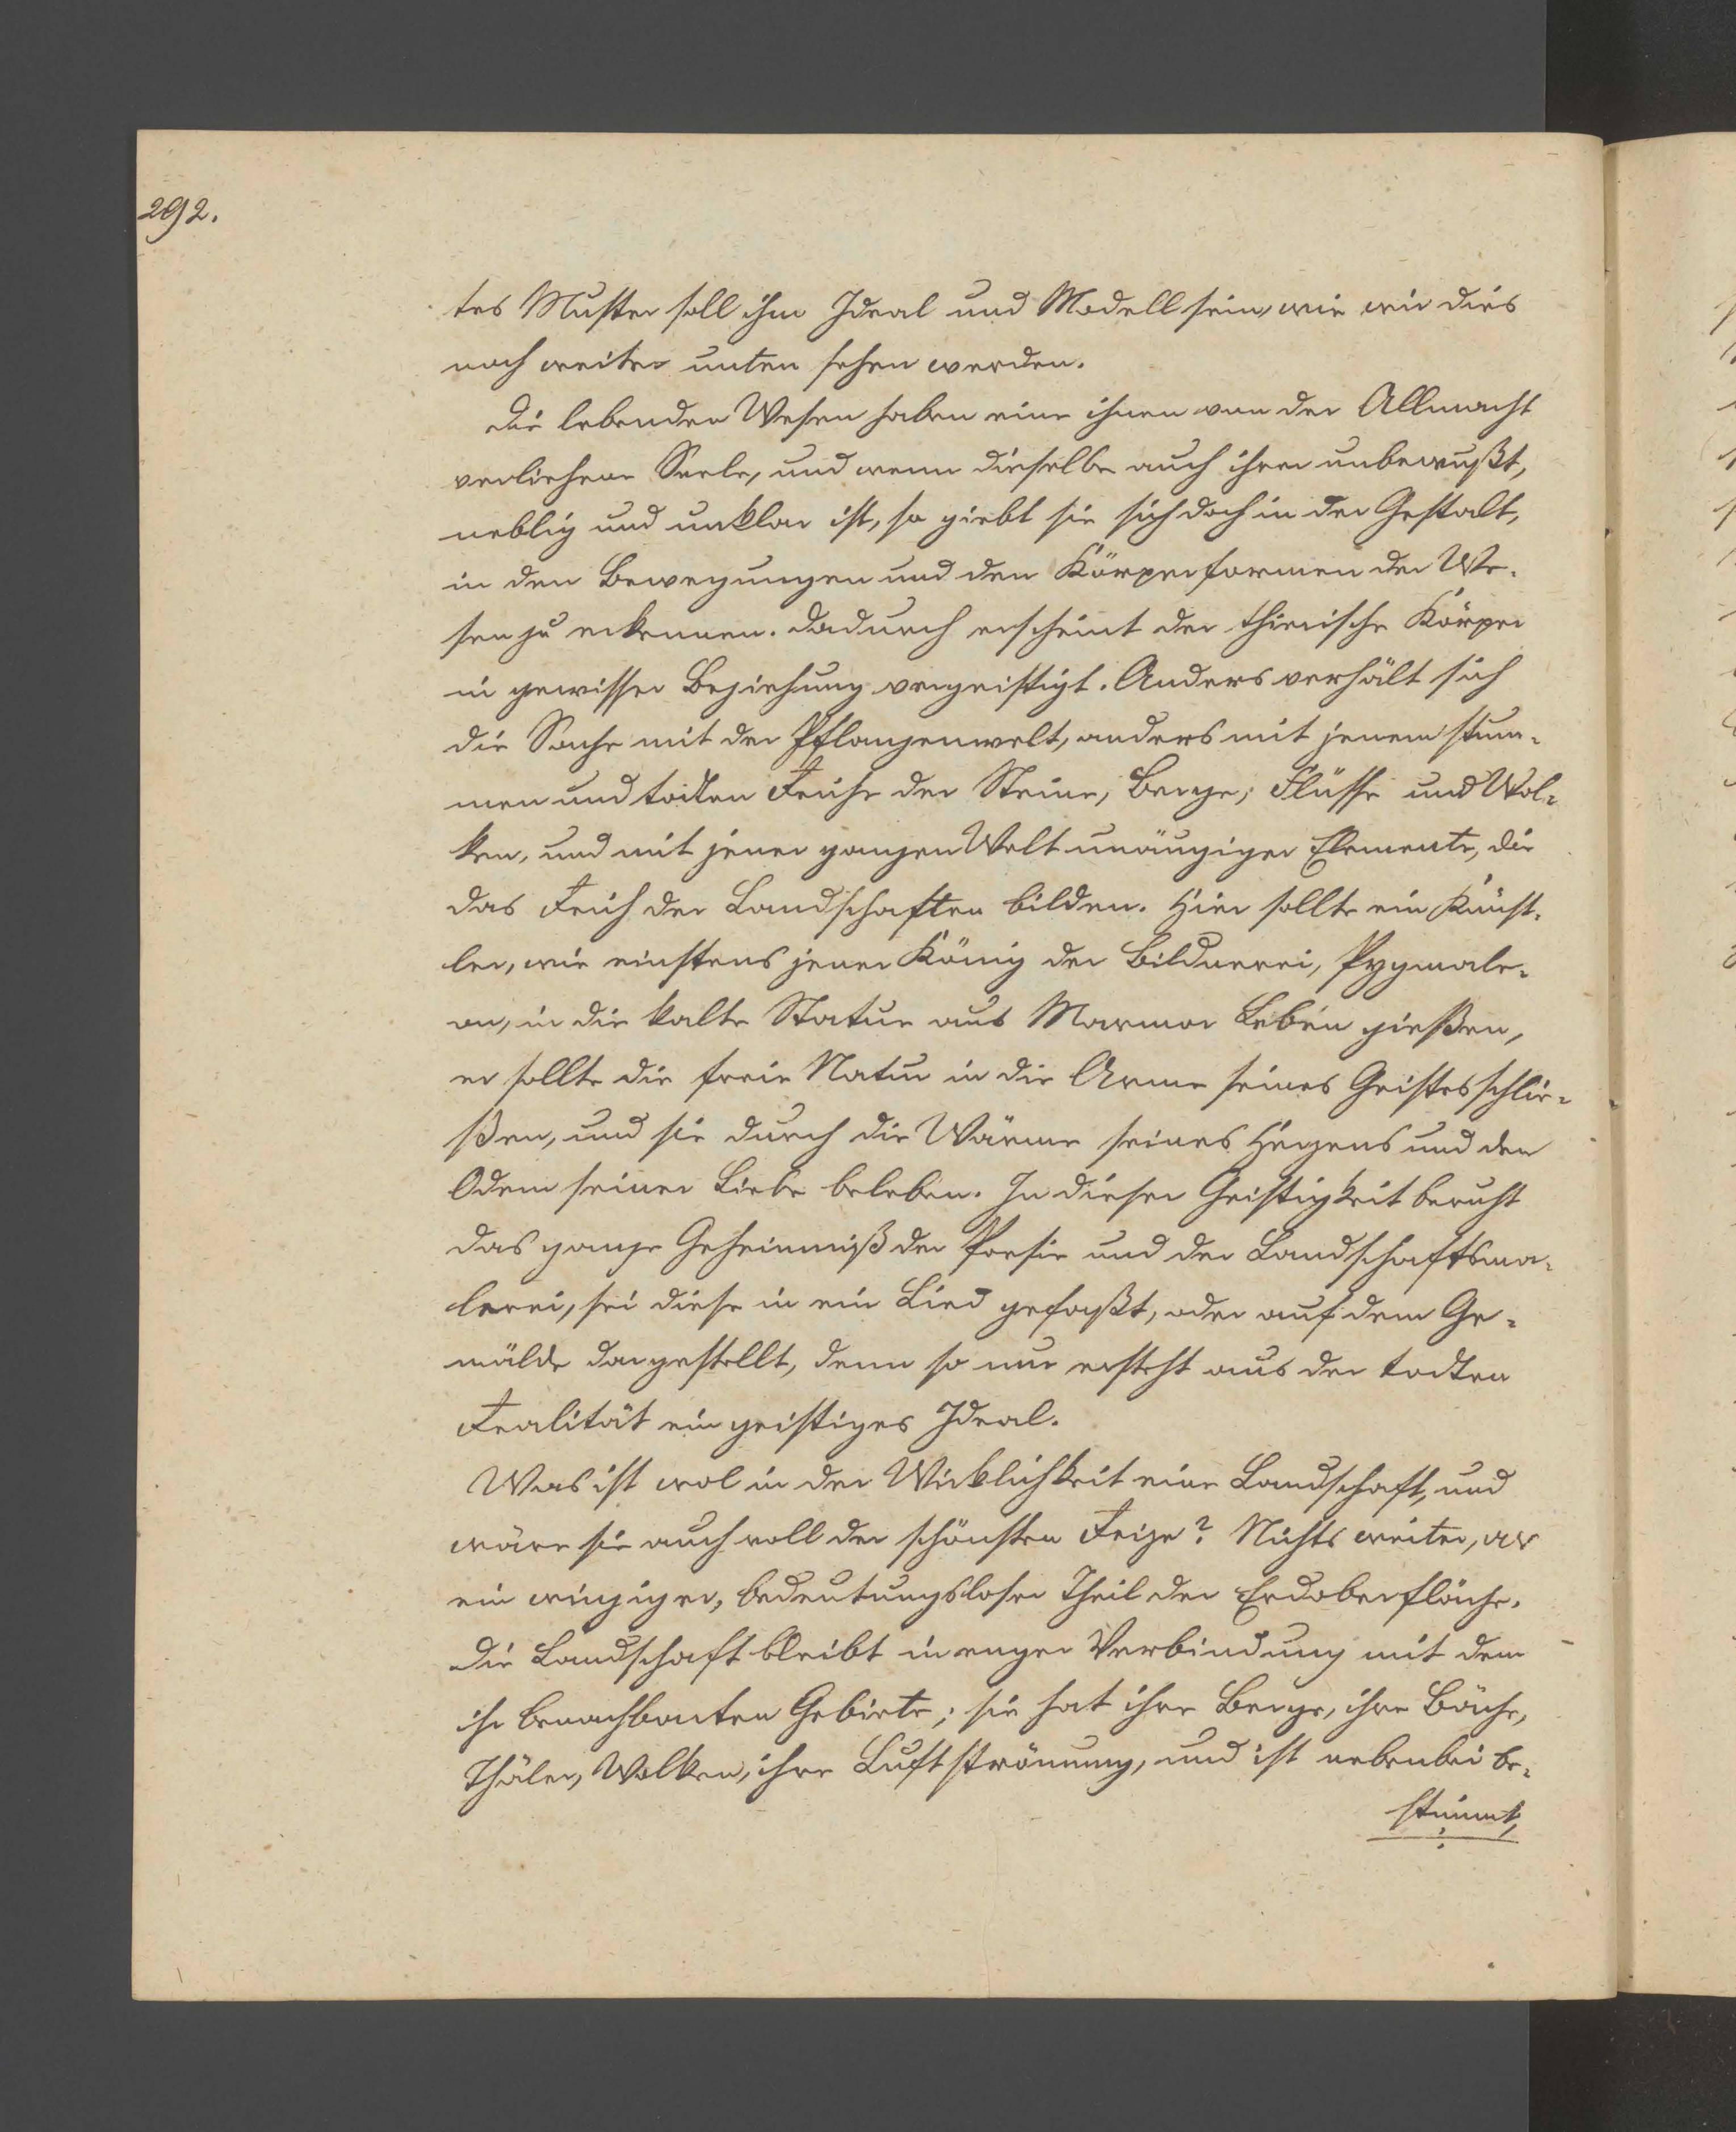 292.
tes Muster soll ihm Ideal und Modell sein, wie wir dies
noch weiter unten sehen werden.
Die lebenden Wesen haben eine ihnen von der Allmacht
verliehene Seele, und wenn dieselbe auch ihnen unbewußt,
neblig und unklar ist, so giebt sie sich doch in der Gestalt,
in den Bewegungen und den Körperformen der We-
sen zu erkennen. Dadurch erscheint der thierische Körper
in gewisser Beziehung vergeistigt. Anders verhält sich
die Sache mit der Pflanzenwelt, anders mit jenem stum-
men und todten Reiche der Steine, Berge, Flüsse und Wol-
ken, und mit jener ganzen Welt unäugiger Elemente, die
das Reich der Landschaften bilden. Hier sollte ein Künst-
ler, wie einstens jener König der Bildnerei, Pygmale-
on, in die kalte Statue aus Marmor Leben gießen,
er sollte die freie Natur in die Arme seines Geistes schlie-
ßen, und sie durch die Wärme seines Herzens und den
Odem seiner Liebe beleben. In dieser Geistigkeit beruht
das ganze Geheimniß der Poesie und der Landschaftsma-
lerei, sei diese in ein Lied gefaßt, oder auf dem Ge-
mälde dargestellt, denn so nur ersteht aus der todten
Realität ein geistiges Ideal.
Was ist wol in der Wirklichkeit eine Landschaft, und
wäre sie auch voll der schönsten Reize? Nichts weiter, als
ein winziger, bedeutungsloser Theil der Erdoberfläche.
Die Landschaft bleibt in enger Verbindung mit dem
ihr benachbarten Gebiete; sie hat ihre Berge, ihre Bäche,
Thäler, Wolken, ihre Luftströmung, und ist nebenbei be-
stimmt,